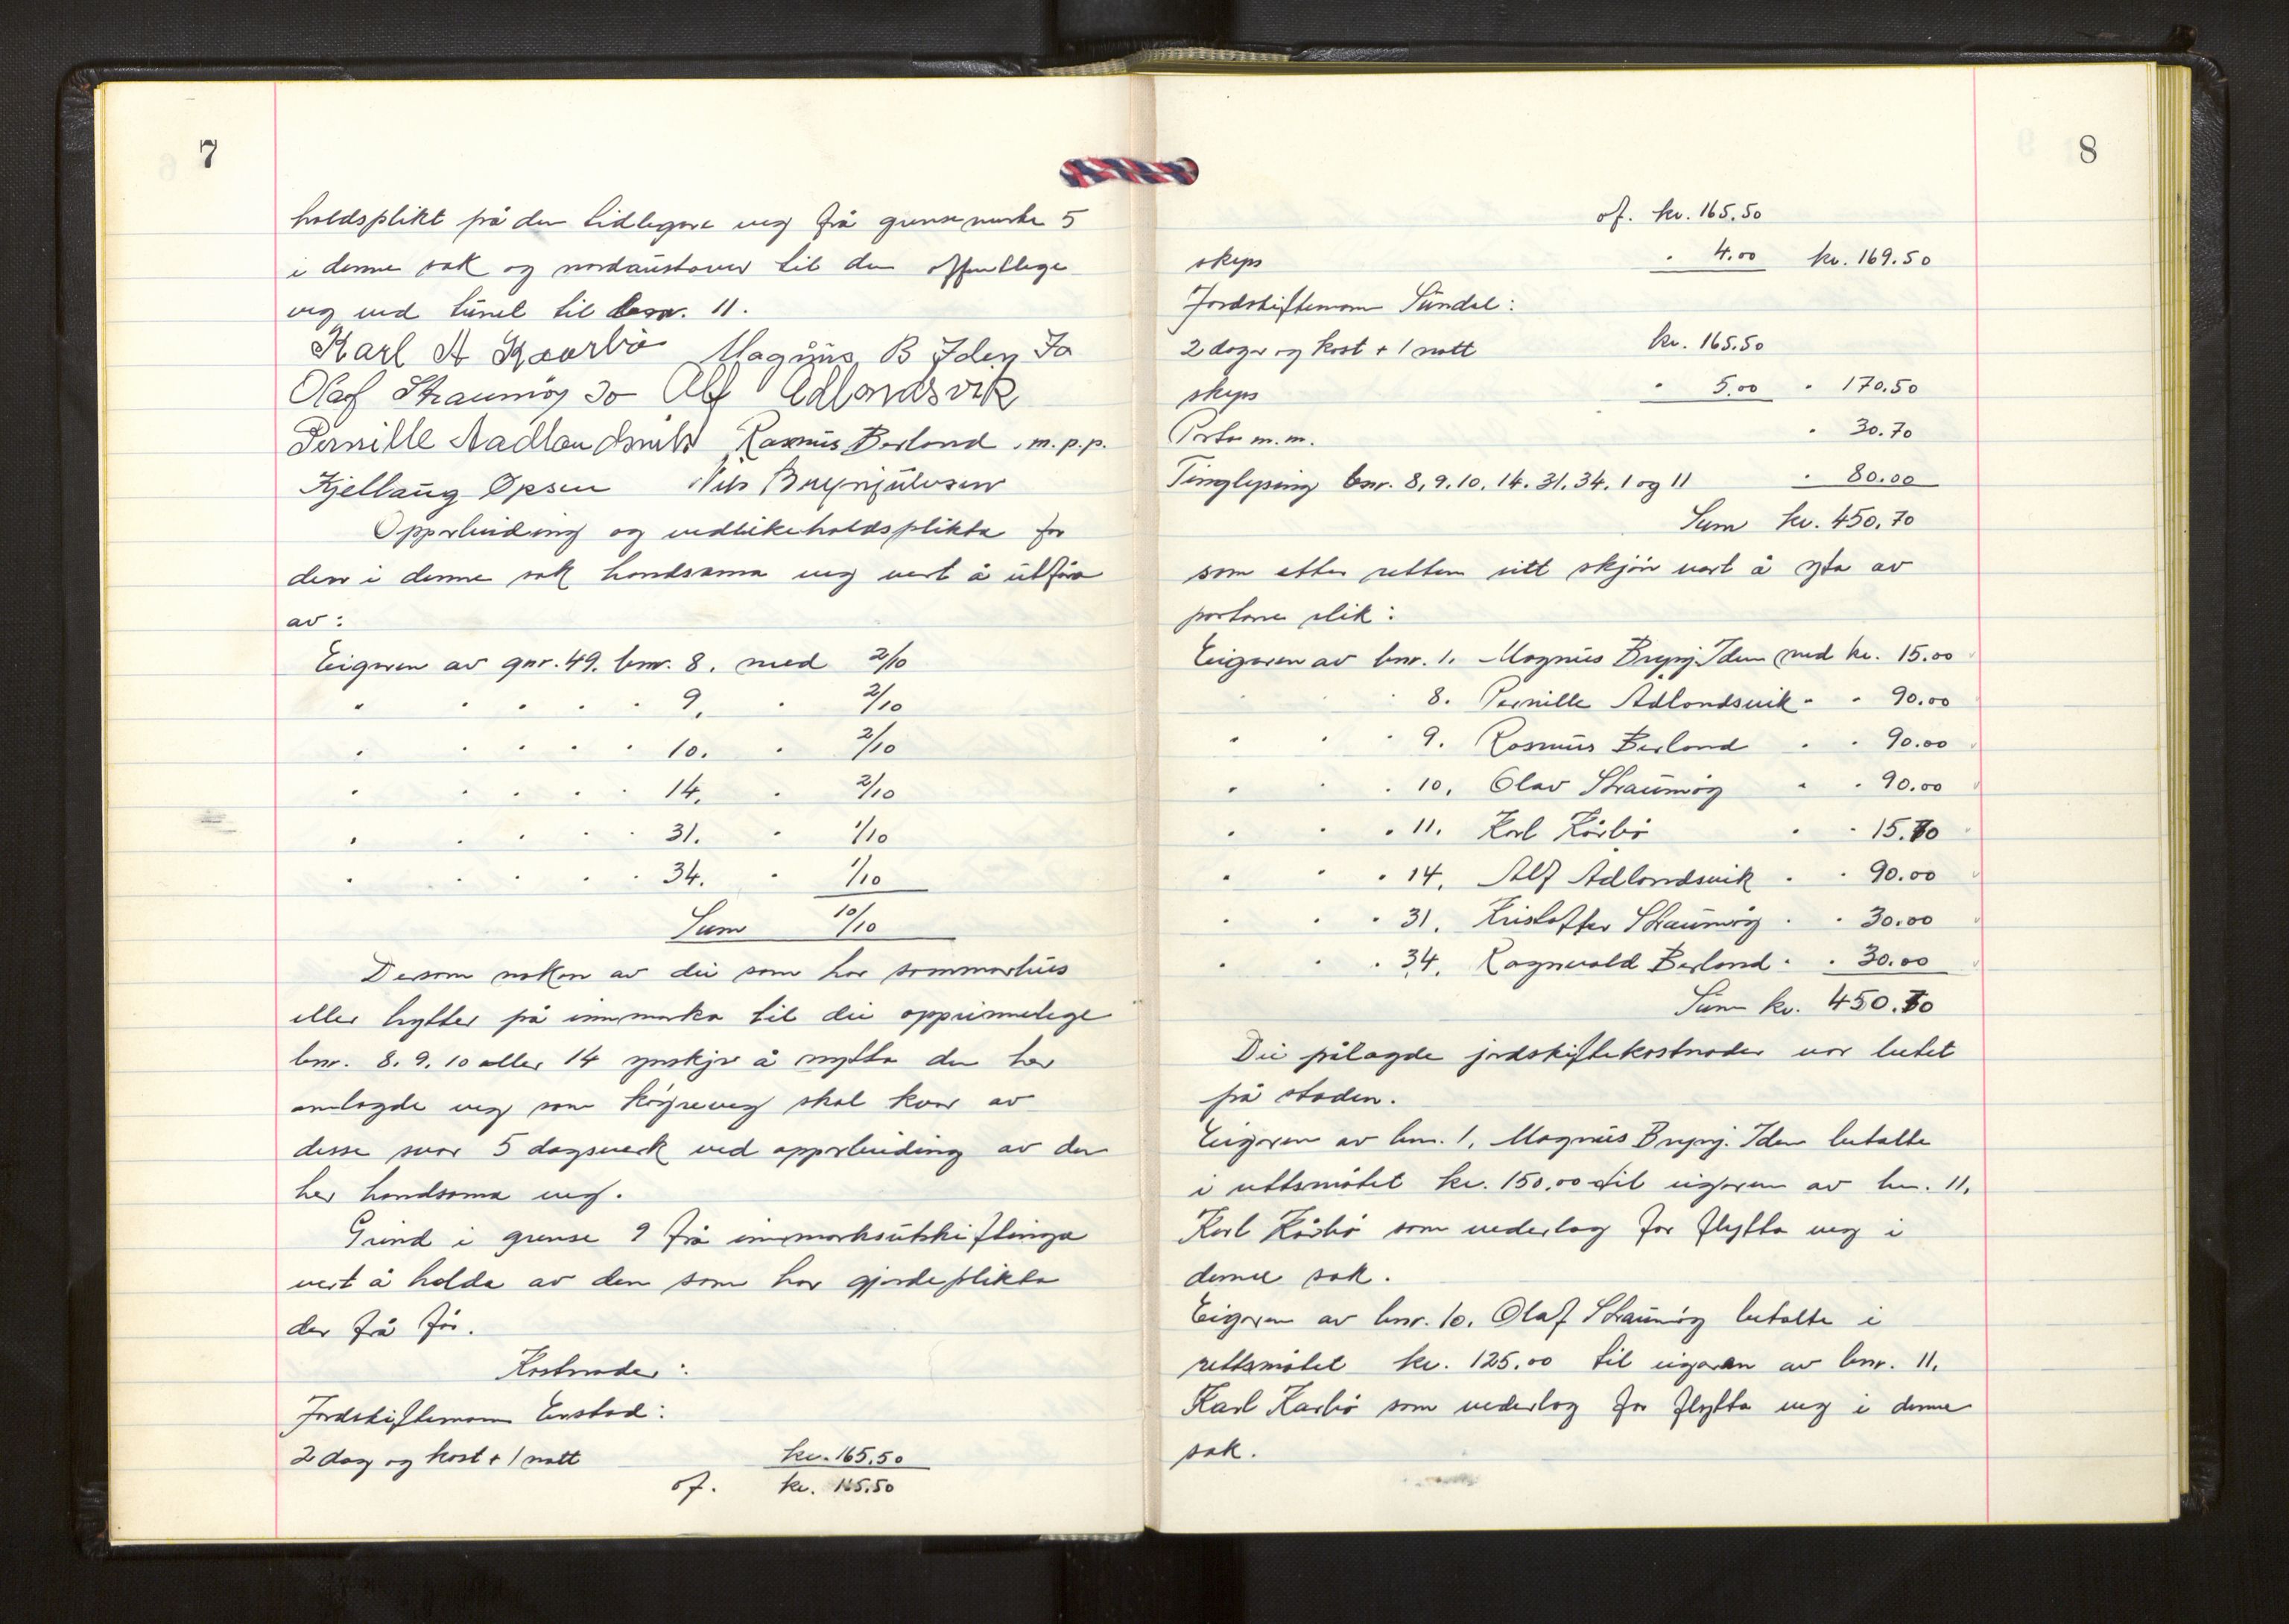 7
holdsplikt på den tidlegare veg frå grensemerke 5
i denne sak og nordaustover til den offentlege
veg ved tunet til bnr. 11.
Karl A Kaarbø Magnus B Iden Ja
Olaf Straumøy Ja Alf Ådlandsvik
Pernille Aadlandsvik Rasmus Berland m.p.p.
Kjellaug Opsen Nils Brynjulvsen
Opparbeiding og vedlikehaldsplikta for
den i denne sak handsama veg vert å utføra
av:
Eigaren av gnr. 49. bnr. 8. med 2/10
" " " " " 9. " 2/10
" " " " " 10. " 2/10
" " " " " 14. " 2/10
" " " " " 31. " 1/10
" " " " " 34. " 1/10
Sum 10/10
Dersom nokon av dei som har sommarhus
eller hytter på innmarka til dei opprinnelege
bnr. 8. 9. 10 eller 14 ynskjer å nytta den her
omlagde veg som køyreveg skal kvar av
desse svar 5 dagsverk ved opparbeiding av den
her handsama veg.
Grind i grense 9 frå innmarksutskiftinga
vert å halda av den som har gjerdeplikta
der frå før.
Kostnader:
Jordskiftemann Enstad:
2 dag og kost + 1 natt kr. 165.50
of. kr. 165.50
8
of. kr. 165.50
skyss " 4.00 kr. 169.50
Jordskiftemann Sundal:
2 dagar og kost + 1 natt kr. 165.50
skyss " 5.00 " 170.50
Porto m.m. " 30.70
Tinglysing bnr. 8, 9. 10. 14. 31. 34. 1 og 11 " 80.00
Sum kr. 450.70
som etter retten sitt skjøn vert å yta av
partane slik:
Eigaren av bnr. 1. Magnus Brynj. Iden med kr. 15.00
" " " 8. Pernille Ådlandsvik " " 90.00
" " " 9. Rasmus Berland " " 90.00
" " " 10. Olav Straumøy " " 90.00
" " " 11. Karl Kårbø " " 15.70
" " " 14. Alf Ådlandsvik " " 90.00
" " " 31. Kristoffer Straumøy " " 30.00
" " " 34. Ragnvald Berland " " 30.00
Sum kr. 450.70
Dei pålagde jordskiftekostnader var betalt
på staden.
Eigaren av bnr. 1. Magnus Brynj. Iden betalte
i rettsmøtet kr. 150.00 til eigaren av bnr. 11.
Karl Kårbø som vederlag for flytta veg i
denne sak.
Eigaren av bnr. 10. Olaf Straumøy betalte i
rettsmøtet kr. 125.00 til eigaren av bnr. 11.
Karl Karbø som vederlag for flytta veg i denne
sak.